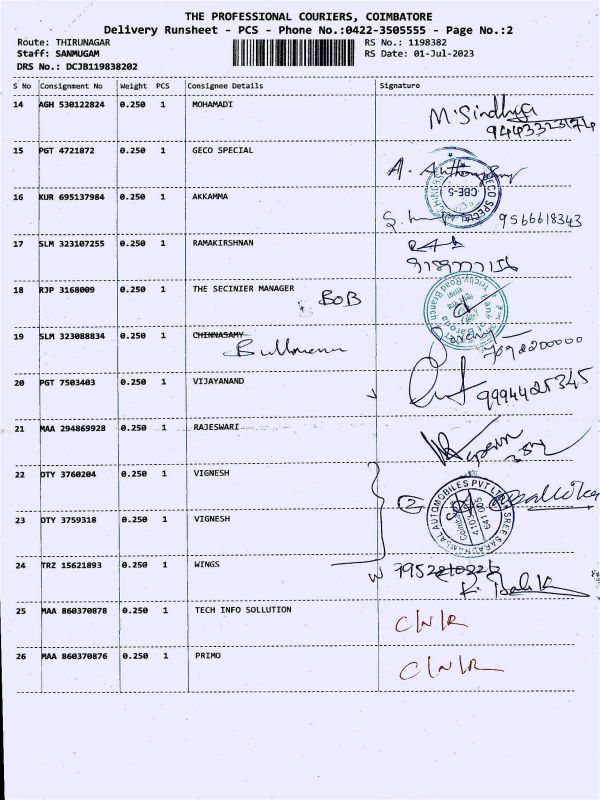 THE PROFESSIONAL COURIERS, COIMBATORE
Delivery Runsheet - PCS - Phone No.:0422-3505555 - Page No.:2
Route: THIRUNAGAR RS No.: 1198382
Staff: SANMUGAM RS Date: 01-Jul-2023
DRS No.: DCJB119838202
S No Consignment No Weight PCS Consignee Details Signature
14 AGH 530122824 0.250 1 MOHAMADI
M. Sindhya
15 PGT 4721872 0.250 1 GECO SPECIAL
CBE-5
16 KUR 695137984 0.250 1 AKKAMMA
9566618343
17 SLM 323107255 0.250 1 RAMAKIRSHNAN
18 RJP 3168009 0.250 1 THE SECINIER MANAGER
BOB
19 SLM 323088834 0.250 1 CHINNASAMY
20 PGT 7503403 0.250 1 VIJAYANAND
9994425345
21 MAA 294869928 0.250 1 RAJESWARI
22 OTY 3760204 0.250 1 VIGNESH
2
23 OTY 3759318 0.250 1 VIGNESH
24 TRZ 15621893 0.250 1 WINGS
25 MAA 860370878 0.250 1 TECH INFO SOLLUTION
C/N/R
26 MAA 860370876 0.250 1 PRIMO
C/N/R